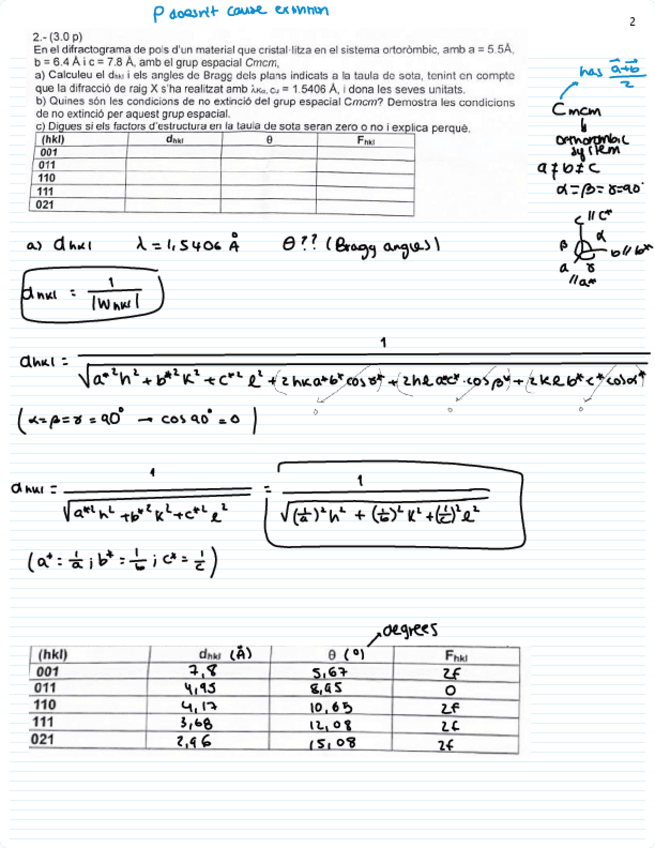 P doesn't cause extinction
2
2.- (3.0 p)
En el difractograma de pols d'un material que cristal·litza en el sistema ortoròmbic, amb a = 5.5Å,
b = 6.4 Å i c = 7.8 Å, amb el grup espacial Cmcm,
a) Calculeu el dhkl i els angles de Bragg dels plans indicats a la taula de sota, tenint en compte
que la difracció de raig X s'ha realitzat amb λKα, Cu = 1.5406 Å, i dona les seves unitats.
b) Quines són les condicions de no extinció del grup espacial Cmcm? Demostra les condicions
de no extinció per aquest grup espacial.
c) Digues si els factors d'estructura en la taula de sota seran zero o no i explica perquè.
(hkl) dhkl θ Fhkl
001
011
110
111
021
has (a⃗+b⃗)/2
Cmcm
orthorombic
system
a ≠ b ≠ c
α = β = γ = 90°
c // c*
α
β
b // b*
a γ
// a*
a) dhkl λ = 1,5406 Å θ?? (Bragg angles)
dhkl = 1/|Whkl|
dhkl = 1/√(a*²h² + b*²k² + c*²l² + (2hka*b* cos γ*) + (2hla*c* · cos β*) + (2klb*c* cos α*)
0 0 0
(α = β = γ = 90° → cos 90° = 0)
dhkl = 1/√(a*²h² + b*²k² + c*²l²) = 1/√((1/a)²h² + (1/b)²k² + (1/c)²l²)
(a* = 1/a ; b* = 1/b ; c* = 1/c)
degrees
(hkl) dhkl (Å) θ (°) Fhkl
001 7,8 5,67 2f
011 4,95 8,95 0
110 4,17 10,65 2f
111 3,68 12,08 2f
021 2,96 15,08 2f